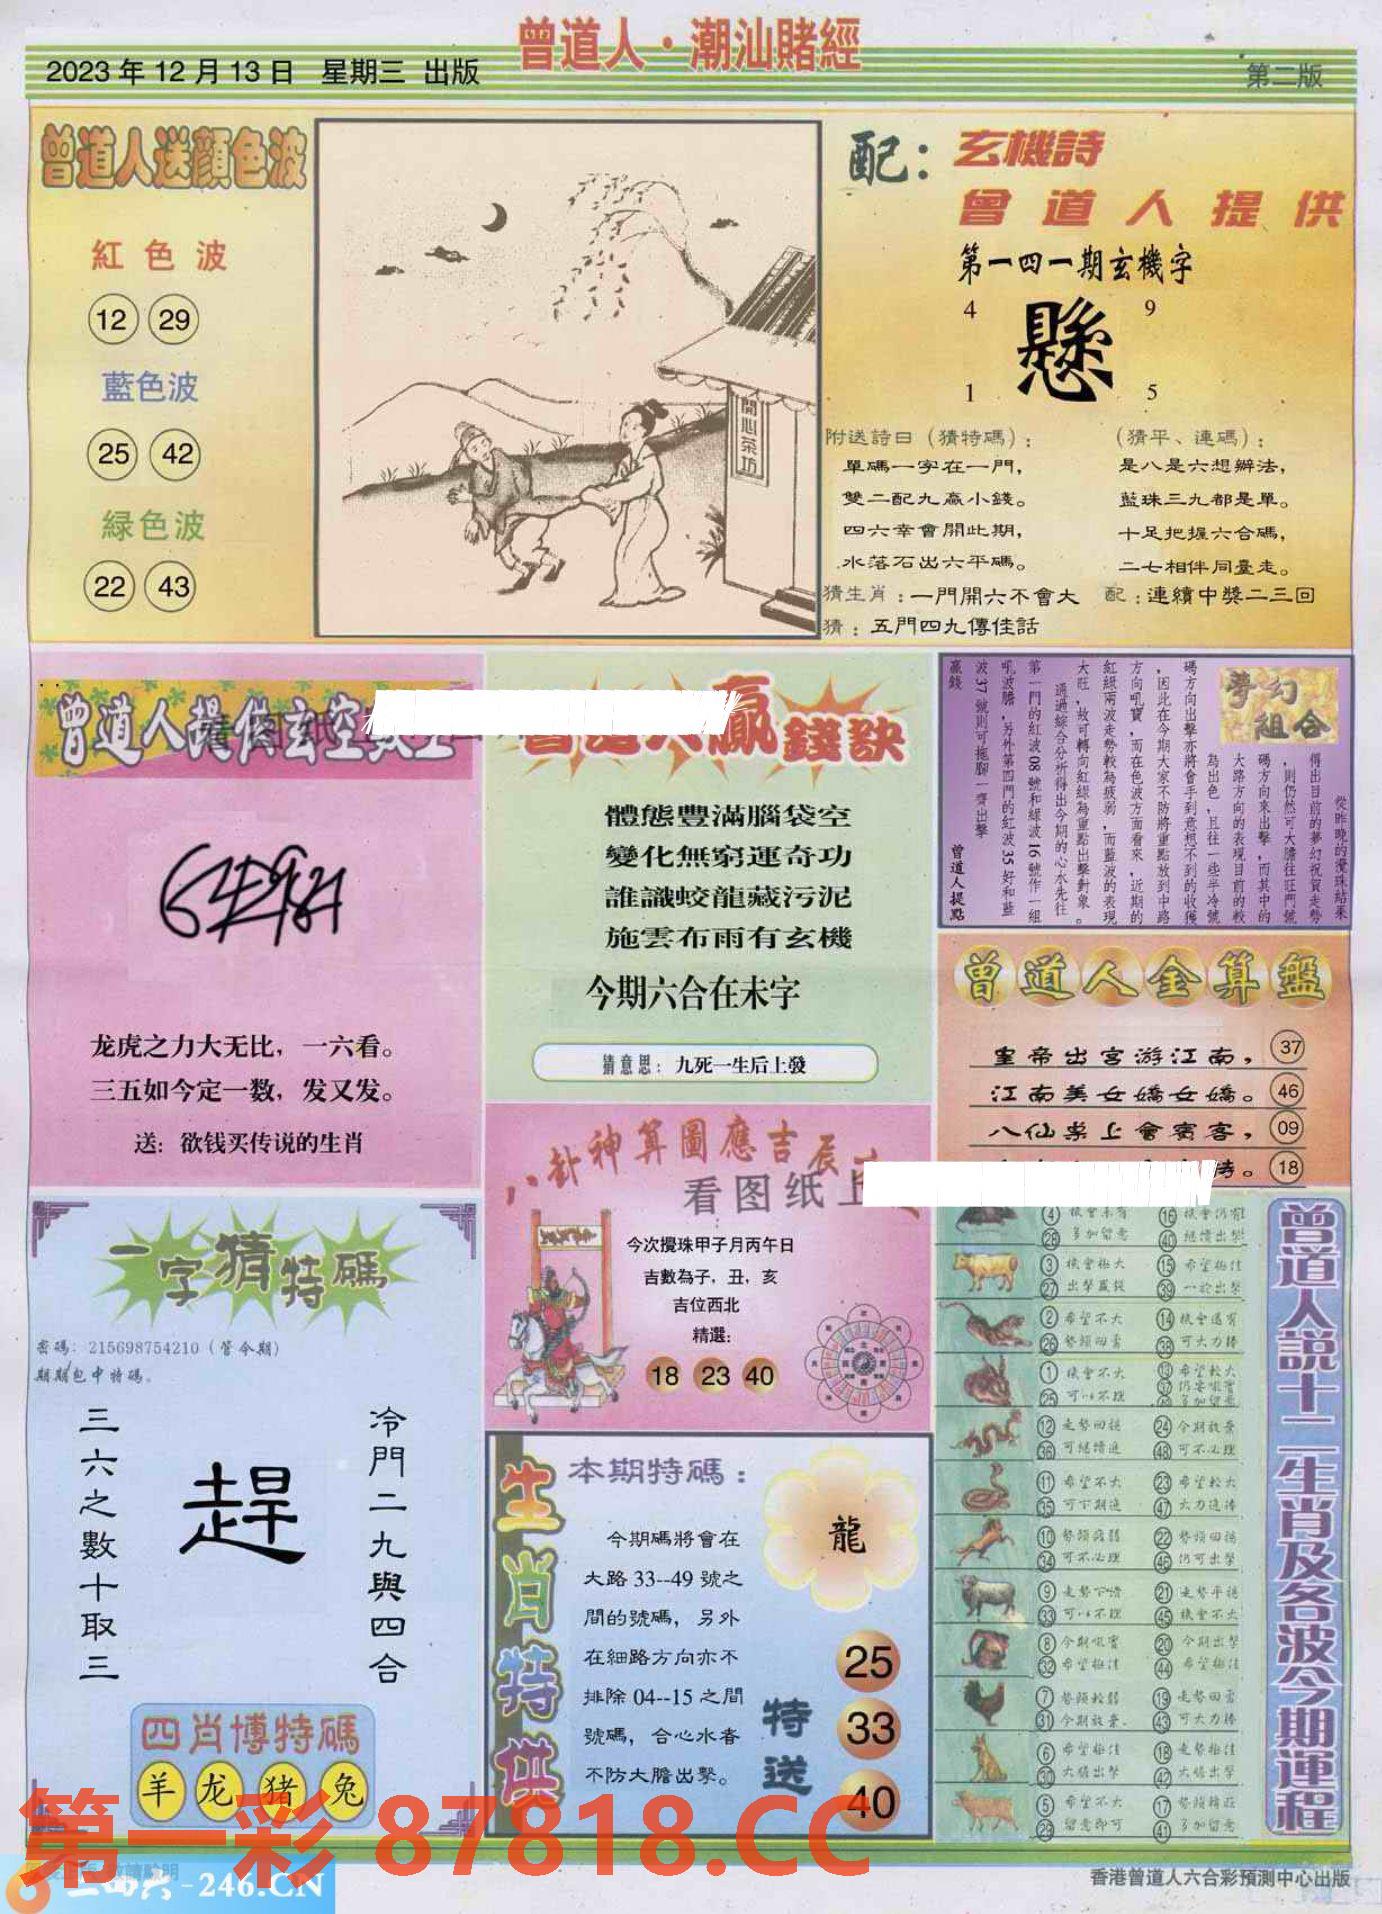 曾道人·潮汕賭經
2023年12月13日 星期三 出版
第二版
曾道人送顔色波
紅色波
12 29
藍色波
25 42
緑色波
22 43
開心茶坊
配：玄機詩
曾道人提供
第一四一期玄機字
4 9
懸
1 5
附送詩曰（猜特碼）：
單碼一字在一門，
雙二配九贏小錢。
四六幸會開此期，
水落石出六平碼。
（猜平、連碼）：
是八是六想辦法，
藍珠三九都是單。
十足把握六合碼，
二七相伴同臺走。
猜生肖：一門開六不會大 配：連續中獎二三回
猜：五門四九傳佳話
曾道人提供玄空
龙虎之力大无比，一六看。
三五如今定一数，发又发。
送：欲钱买传说的生肖
贏錢訣
體態豐滿腦袋空
變化無窮運奇功
誰識蛟龍藏污泥
施雲布雨有玄機
今期六合在未字
猜意思：九死一生后上發
夢幻組合
從昨晚的攪珠結果
得出目前的夢幻祝賀走勢
，則仍然可大膽往旺門號
碼方向來出擊，而其中的
大路方向的表現目前的較
為出色，且往一些半冷號
碼方向出擊亦將會手到意想不到的收獲
，因此在今期大家不防將重點放到中路
方向吼實，而在色波方面看來，近期的
紅綠兩波走勢較為疲弱，而藍波的表現
大旺，故可轉向紅綠為重點出擊對象。
通過綜合分析得出今期的心水先往
第一門的紅波08號和綠波16號作一組
吼波膽，另外第四門的紅波35好和藍
波37號則可拖腳一齊出擊
贏錢
曾道人提點
曾道人金算盤
皇帝出宮游江南， 37
江南美女嬌女嬌。 46
八仙桌上會賓客， 09
待。 18
八卦神算圖應吉辰
看图纸上
今次攪珠甲子月丙午日
吉數為子，丑，亥
吉位西北
精選：
18 23 40
一字猜特碼
密碼：215698754210（管今期）
期期包中特碼。
冷門二九與四合
趕
三六之數十取三
四肖博特碼
羊 龙 猪 兔
生肖特供
本期特碼：
今期碼將會在
大路33--49號之
間的號碼，另外
在細路方向亦不
排除04--15之間
號碼，合心水者
不防大膽出擊。
龍
特送
25
33
40
曾道人説十二生肖及各波今期運程
4 28 多加留意 16 機會仍有 40 繼續出擊
3 機會極大 27 出擊贏錢 15 希望極佳 39 一於出擊
2 希望不大 26 勢頭回落 14 機會還有 38 可大力捧
1 機會不大 25 可以不理 13 希望較大
12 走勢回穩 36 可繼續追 24 今期放棄 48 可不必理
11 希望不大 35 可下期追 23 希望較大 47 大力追捧
10 勢頭疲弱 34 可不必理 22 勢頭回穩 46 仍可出擊
9 33 可以不理 21 走勢平穩 45 機會不大
8 今期吼實 32 希望極佳 20 今期出擊 44 希望極佳
7 勢頭較弱 31 今期放棄 19 走勢回落 43 可大力捧
6 希望極佳 30 大膽出擊 18 走勢極佳 42 大膽出擊
5 希望不大 29 留意即可 17 41 多加留意
第一彩 87818.CC
二四六-246.CN
香港曾道人六合彩預測中心出版